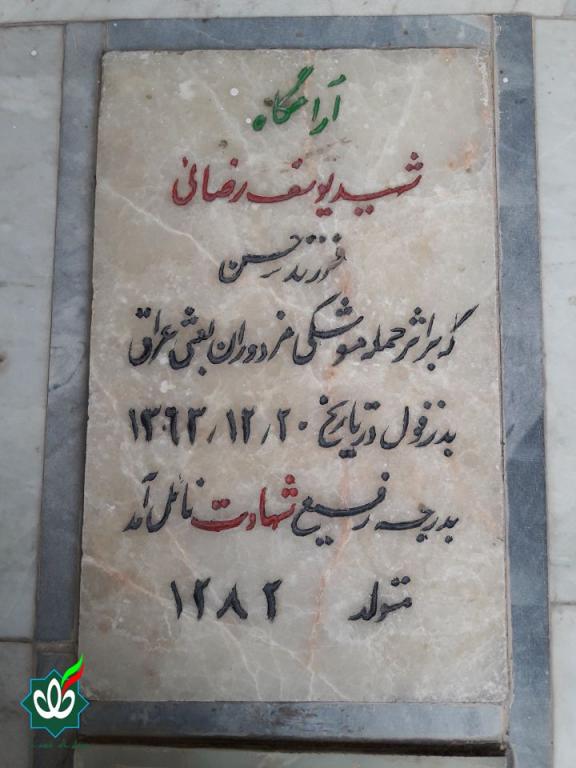 آرامگاه
شهید یوسف رضائی
فرزند حسن
که بر اثر حمله موشکی مزدوران بعثی عراق
بدزفول در تاریخ ۱۳۶۳٫۱۲٫۲۰
بدرجه رفیع شهادت نائل آمد
متولد ۱۲۸۲